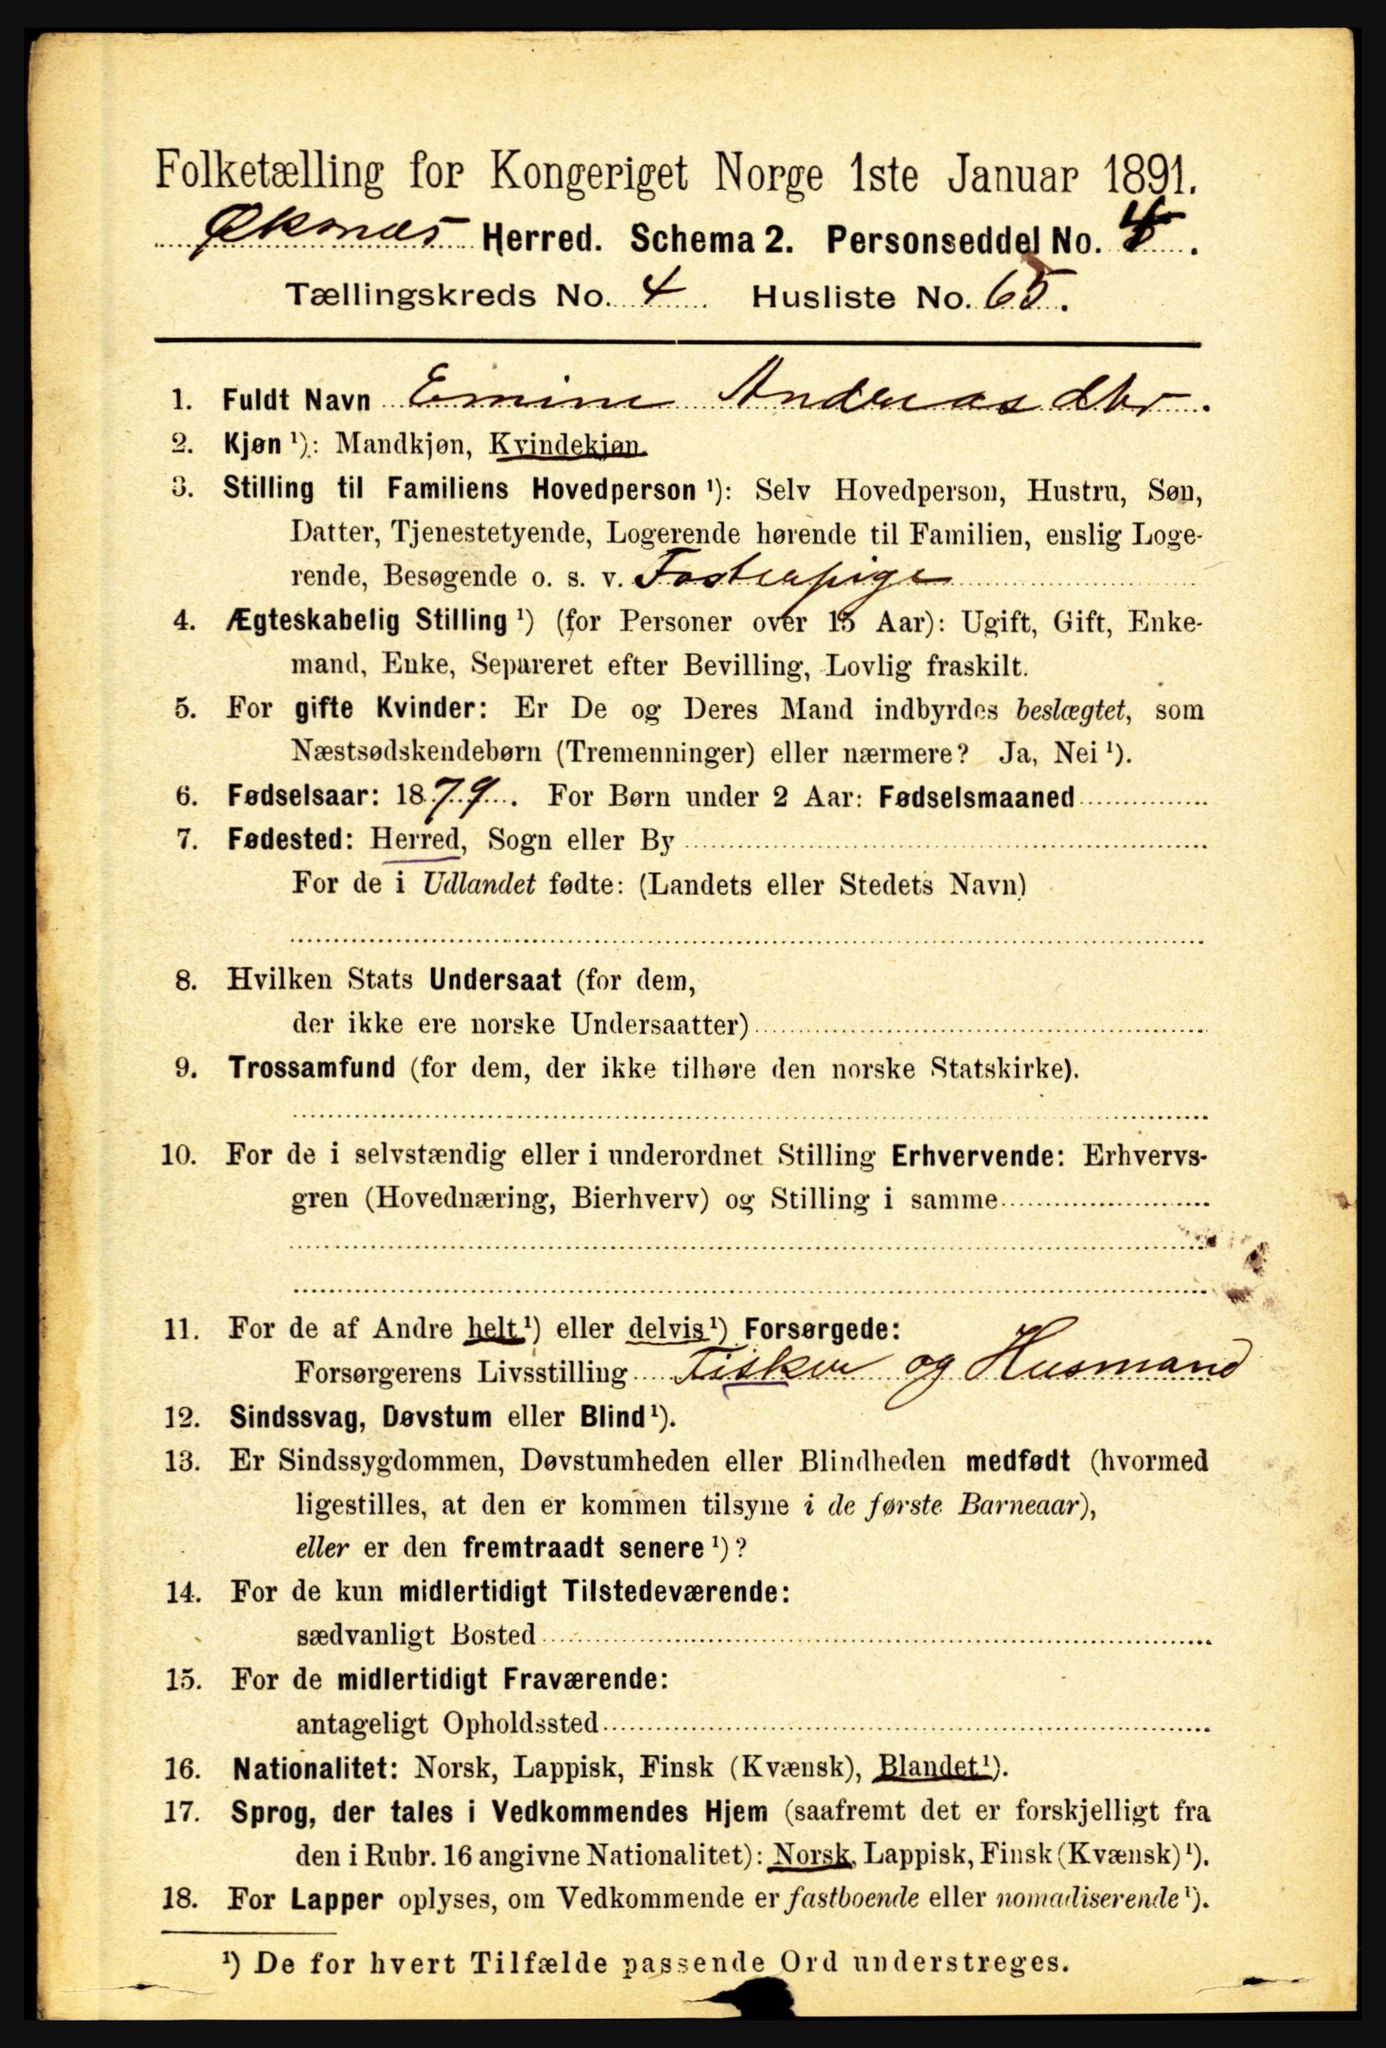 Folketælling for Kongeriget Norge 1ste Januar 1891.
Øksnæs Herred. Schema 2. Personseddel No. .
Tællingskreds No. 4 Husliste No. 65.
1. Fuldt Navn Emine Andreasdtr.
2. Kjøn ¹): Mandkjøn, Kvindekjøn.
3. Stilling til Familiens Hovedperson ¹): Selv Hovedperson, Hustru, Søn,
Datter, Tjenestetyende, Logerende hørende til Familien, enslig Loge-
rende, Besøgende o. s. v. Fosterpige
4. Ægteskabelig Stilling ¹) (for Personer over 15 Aar): Ugift, Gift, Enke-
mand, Enke, Separeret efter Bevilling, Lovlig fraskilt.
5. For gifte Kvinder: Er De og Deres Mand indbyrdes beslægtet, som
Næstsødskendebørn (Tremenninger) eller nærmere? Ja, Nei ¹).
6. Fødselsaar: 1879. For Børn under 2 Aar: Fødselsmaaned
7. Fødested: Herred, Sogn eller By
For de i Udlandet fødte: (Landets eller Stedets Navn)
8. Hvilken Stats Undersaat (for dem,
der ikke ere norske Undersaatter)
9. Trossamfund (for dem, der ikke tilhøre den norske Statskirke).
10. For de i selvstændig eller i underordnet Stilling Erhvervende: Erhvervs-
gren (Hovednæring, Bierhverv) og Stilling i samme
11. For de af Andre helt ¹) eller delvis ¹) Forsørgede:
Forsørgerens Livsstilling Fisker og Husmand
12. Sindssvag, Døvstum eller Blind ¹).
13. Er Sindssygdommen, Døvstumheden eller Blindheden medfødt (hvormed
ligestilles, at den er kommen tilsyne i de første Barneaar),
eller er den fremtraadt senere ¹)?
14. For de kun midlertidigt Tilstedeværende:
sædvanligt Bosted
15. For de midlertidigt Fraværende:
antageligt Opholdssted
16. Nationalitet: Norsk, Lappisk, Finsk (Kvænsk), Blandet ¹).
17. Sprog, der tales i Vedkommendes Hjem (saafremt det er forskjelligt fra
den i Rubr. 16 angivne Nationalitet): Norsk, Lappisk, Finsk (Kvænsk) ¹).
18. For Lapper oplyses, om Vedkommende er fastboende eller nomadiserende ¹).
¹) De for hvert Tilfælde passende Ord understreges.